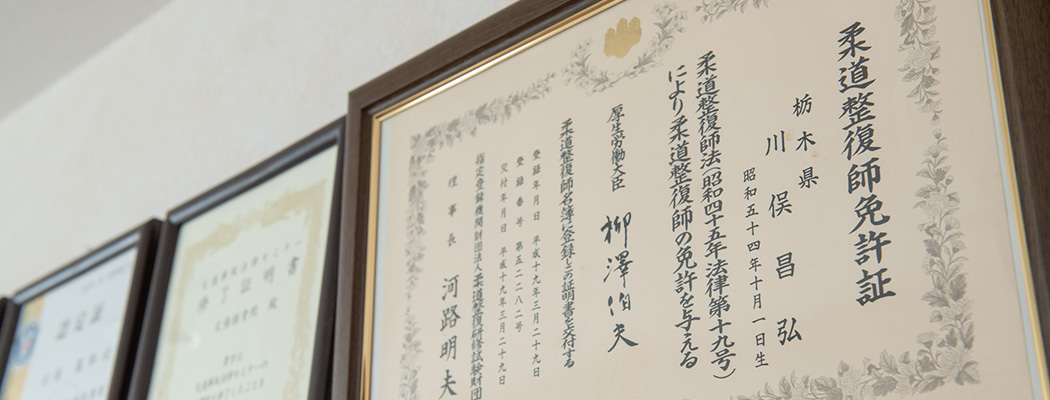 柔道整復師免許証
栃木県
川俣昌弘
昭和五十四年十月一日生
柔道整復師法(昭和四十五年法律第十九号)
により柔道整復師の免許を与える
厚生労働大臣 柳澤伯夫
柔道整復師名簿に登録しこの証明書を交付する
登録年月日 平成十九年三月二十九日
登録番号 第五二二八二号
交付年月日 平成十九年三月二十九日
指定登録機関財団法人柔道整復研修試験財団
理事長 河路明夫
修了証明書
認定証